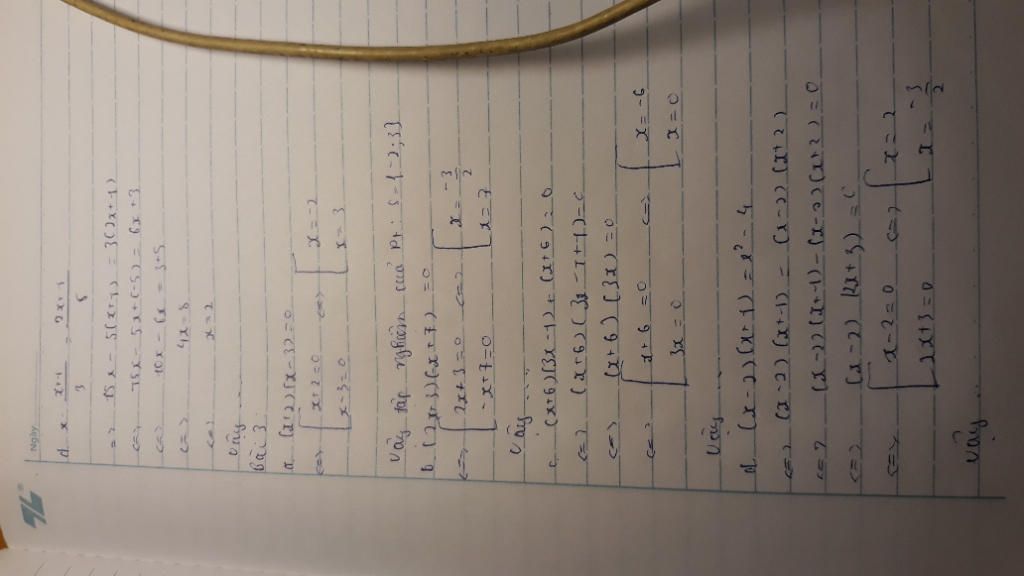 Ngày
d. x - \frac{x+1}{3} = \frac{2x+1}{5}
=> 15x - 5(x+1) = 3(2x+1)
<=> 15x - 5x + (-5) = 6x + 3
<=> 10x - 6x = 3+5
<=> 4x = 8
<=> x = 2
Vậy
Bài 3:
a. (x+2)(x-3) = 0
<=> [ x+2=0 <=> [ x=-2
x-3=0 x=3
Vậy tập nghiệm của pt: S = {-2;3}
b. (2x+3)(-x+7) = 0
<=> [ 2x+3=0 <=> [ x = \frac{-3}{2}
-x+7=0 x=7
Vậy ....
c. (x+6)(3x-1) + (x+6) = 0
<=> (x+6)(3x-1+1) = 0
<=> (x+6)(3x) = 0
<=> [ x+6=0 <=> [ x=-6
3x=0 x=0
Vậy
d. (x-2)(x+1) = x² - 4
<=> (x-2)(x+1) = (x-2)(x+2)
<=> (x-2)(x+1) - (x-2)(x+2) = 0
<=> (x-2)(2x+3) = 0
<=> [ x-2=0 <=> [ x=2
2x+3=0 x = \frac{-3}{2}
Vậy